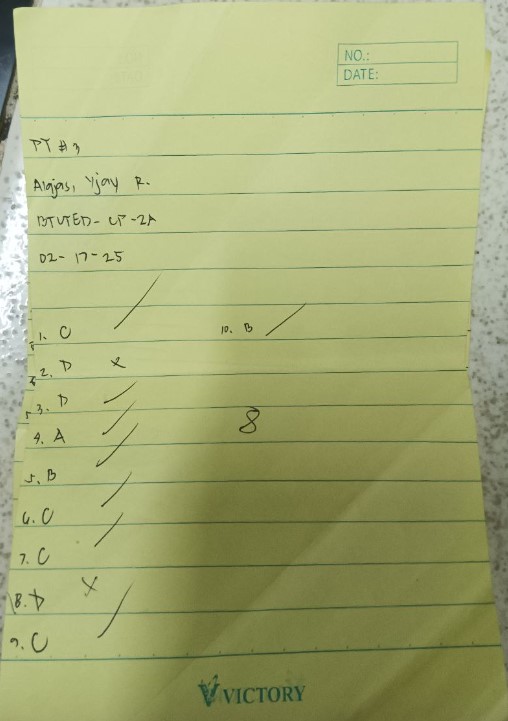 NO.:
DATE:
PT # 3
Alajas, Yjay R.
BTVTED- CP -2A
02- 17-25
1. C
2. D
3. D
4. A
5. B
6. C
7. C
8. D
9. C
10. B
8
VICTORY